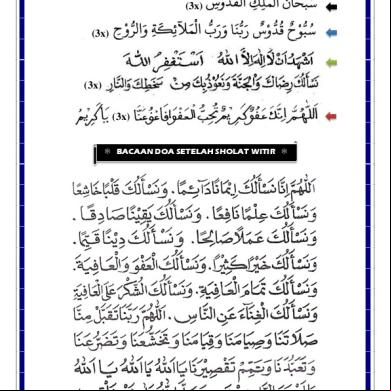 سُبْحَانَ الْمَلِكِ الْقُدُّوْسِ (3x)
سُبُّوْحٌ قُدُّوْسٌ رَبُّنَا وَرَبُّ الْمَلَآئِكَةِ وَالرُّوْحِ (3x)
اَشْهَدُ اَنْ لَا اِلٰهَ اِلَّا اللهُ اَسْتَغْفِرُ اللهَ
نَسْأَلُكَ رِضَاكَ وَالْجَنَّةَ وَنَعُوْذُبِكَ مِنْ سَخَطِكَ وَالنَّارِ (3x)
اَللّٰهُمَّ اِنَّكَ عَفُوٌّ كَرِيْمٌ تُحِبُّ الْعَفْوَ فَاعْفُ عَنَّا (3x) يَاكَرِيْمُ
BACAAN DOA SETELAH SHOLAT WITIR
اَللّٰهُمَّ اِنَّا نَسْأَلُكَ اِيْمَانًا دَائِمًا. وَنَسْأَلُكَ قَلْبًا خَاشِعًا
وَنَسْأَلُكَ عِلْمًا نَافِعًا. وَنَسْأَلُكَ يَقِيْنًا صَادِقًا.
وَنَسْأَلُكَ عَمَلًا صَالِحًا. وَنَسْأَلُكَ دِيْنًا قَيِّمًا.
وَنَسْأَلُكَ خَيْرًا كَثِيْرًا. وَنَسْأَلُكَ الْعَفْوَ وَالْعَافِيَةَ.
وَنَسْأَلُكَ تَمَامَ الْعَافِيَةِ. وَنَسْأَلُكَ الشُّكْرَ عَلَى الْعَافِيَةِ
وَنَسْأَلُكَ الْغِنَاءَ عَنِ النَّاسِ. اَللّٰهُمَّ رَبَّنَا تَقَبَّلْ مِنَّا
صَلَاتَنَا وَصِيَامَنَا وَقِيَامَنَا وَتَخَشُّعَنَا وَتَضَرُّعَنَا
وَتَعَبُّدَنَا وَتَمِّمْ تَقْصِيْرَنَا يَا اَللهُ يَا اَللهُ يَا اَللهُ